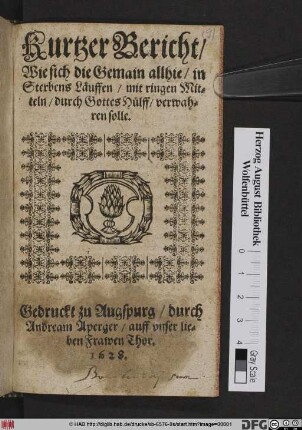 Kurtzer Bericht/
Wie sich die Gemain allhie/ in
Sterbens Läuffen/ mit ringen Mit-
teln/ durch Gottes Hülff/ verwah-
ren solle.
Gedruckt zu Augspurg/ durch
Andream Aperger/ auff vnser lie-
ben Frawen Thor.
1628.
Herzog August Bibliothek
Wolfenbüttel
0 1 2 3 4
Gray Scale
© HAB http://diglib.hab.de/drucke/
DFG